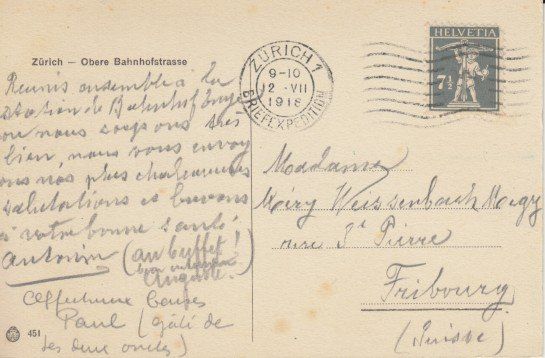 Zürich — Obere Bahnhofstrasse
Réunis ensemble à la
station de Bahnhof
où nous soupons très
bien, nous vous envoy
ons nos plus chaleureuses
salutations et buvons
à votre bonne santé!
Antonin (au buffet
bon
Auguste.)
Affectueux baisers
Paul (gâté de
ses deux oncles)
451
ZÜRICH 1
9-10
12.VII
1918
BRIEFEXPEDITION
HELVETIA
7½
Madame
Méry Weissenbach
rue St Pierre
Fribourg
(Suisse)